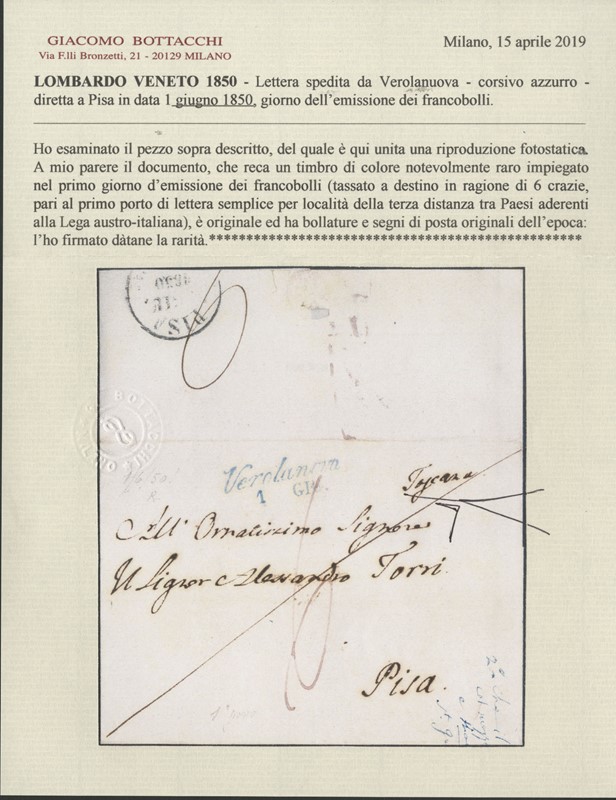 GIACOMO BOTTACCHI
Via F.lli Bronzetti, 21 - 20129 MILANO
Milano, 15 aprile 2019
LOMBARDO VENETO 1850 - Lettera spedita da Verolanuova - corsivo azzurro -
diretta a Pisa in data 1 giugno 1850, giorno dell'emissione dei francobolli.
Ho esaminato il pezzo sopra descritto, del quale è qui unita una riproduzione fotostatica.
A mio parere il documento, che reca un timbro di colore notevolmente raro impiegato
nel primo giorno d'emissione dei francobolli (tassato a destino in ragione di 6 crazie,
pari al primo porto di lettera semplice per località della terza distanza tra Paesi aderenti
alla Lega austro-italiana), è originale ed ha bollature e segni di posta originali dell'epoca:
l'ho firmato dàtane la rarità.**************************************************
1850
PISA
6
BOTTACCHI
Verolanuova
1 GIU.
Toscana
All' Ornatissimo Signore
Il Signor Alessandro Torri
Pisa.